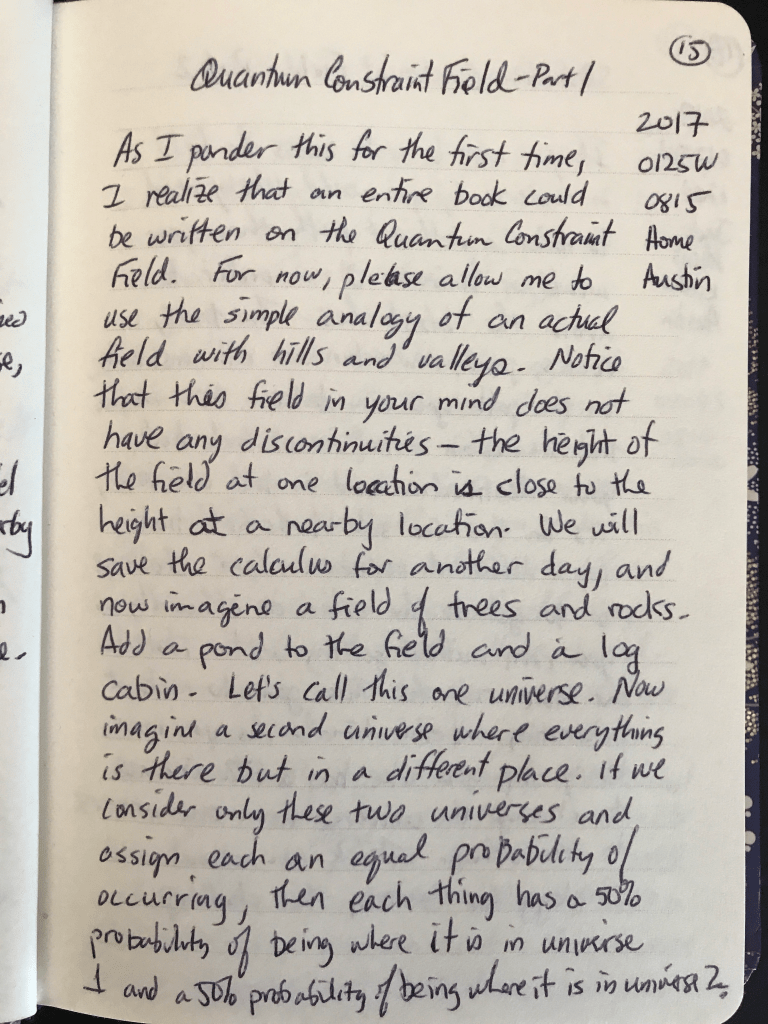 15
Quantum Constraint Field - Part 1
2017
0125W
0815
Home
Austin
As I ponder this for the first time,
I realize that an entire book could
be written on the Quantum Constraint
Field. For now, please allow me to
use the simple analogy of an actual
field with hills and valleys. Notice
that this field in your mind does not
have any discontinuities - the height of
the field at one location is close to the
height at a nearby location. We will
save the calculus for another day, and
now imagine a field of trees and rocks.
Add a pond to the field and a log
cabin. Let's call this one universe. Now
imagine a second universe where everything
is there but in a different place. If we
consider only these two universes and
assign each an equal probability of
occurring, then each thing has a 50%
probability of being where it is in universe
1 and a 50% probability of being where it is in universe 2.